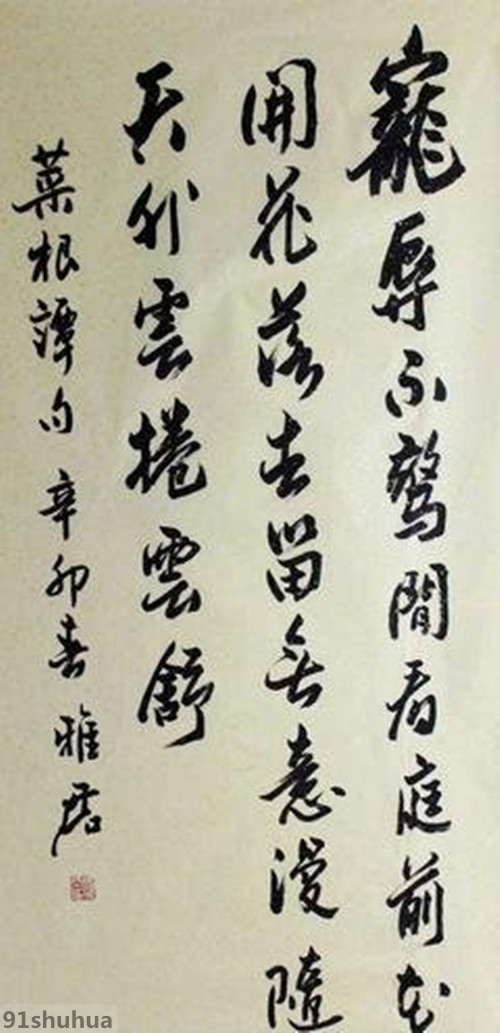 寵辱不驚閒看庭前花
開花落去留無意漫隨
天外雲捲雲舒
菜根譚句 辛卯春 雅居
91shuhua